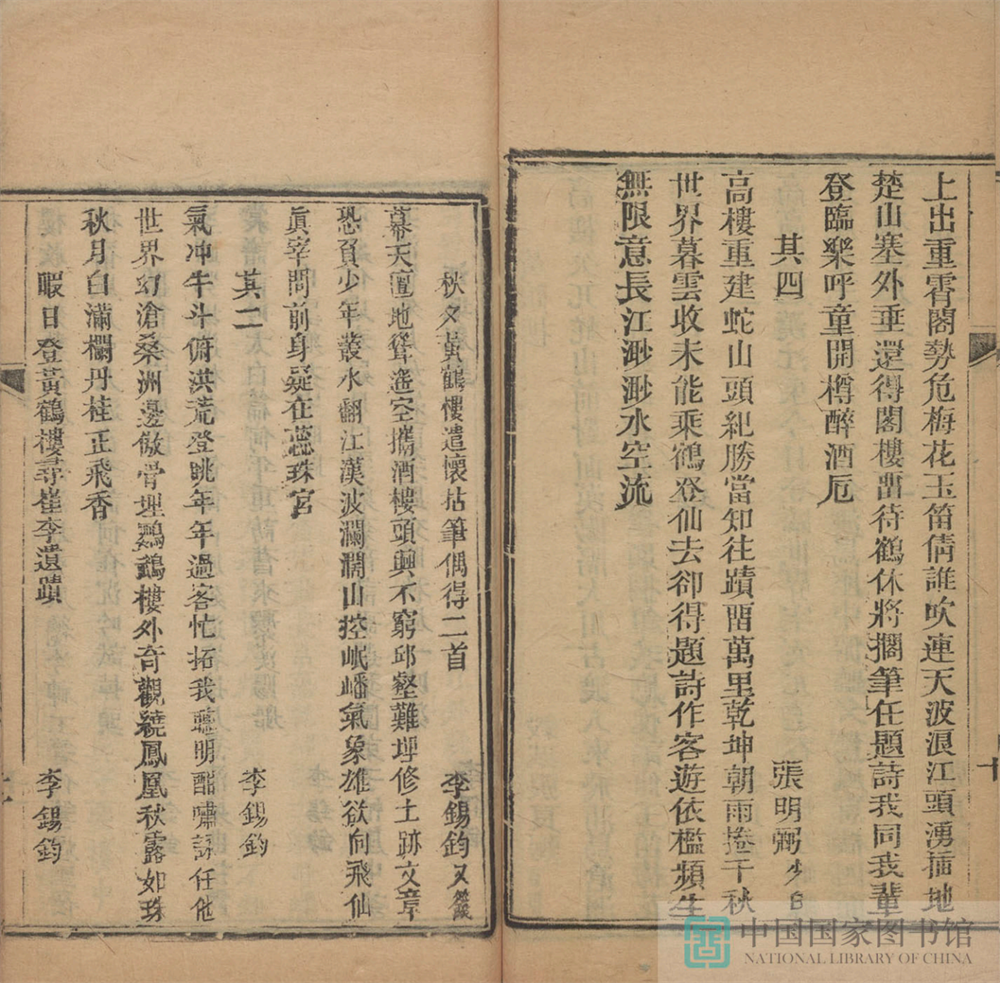 上出重霄閣勢危梅花玉笛倩誰吹連天波浪江頭湧插地
楚山塞外垂還得閣樓畱待鶴休將擱筆任題詩我同我輩
登臨樂呼童開樽醉酒卮
其四 張明弼少白
高樓重建蛇山頭紀勝當知往蹟畱萬里乾坤朝雨捲千秋
世界暮雲收未能乘鶴登仙去卻得題詩作客遊依檻頻生
無限意長江渺渺水空流
秋夕黃鶴樓遣懷拈筆偶得二首 李錫鈞又
幕天蓆地聳遙空攜酒樓頭興不窮邱壑難埋修士跡文章
恐負少年叢水翻江漢波瀾濶山控岷嶓氣象雄欲向飛仙
眞宰問前身疑在蕊珠宮
其二 李錫鈞
氣冲牛斗俯洪荒登眺年年過客忙拓我聰明酣嘯詠任他
世界幻滄桑洲邊傲骨埋鸚鵡樓外奇觀繞鳳凰秋露如珠
秋月白滿欄丹桂正飛香
暇日登黃鶴樓尋崔李遺蹟 李錫鈞
十
中国国家图书馆
NATIONAL LIBRARY OF CHINA